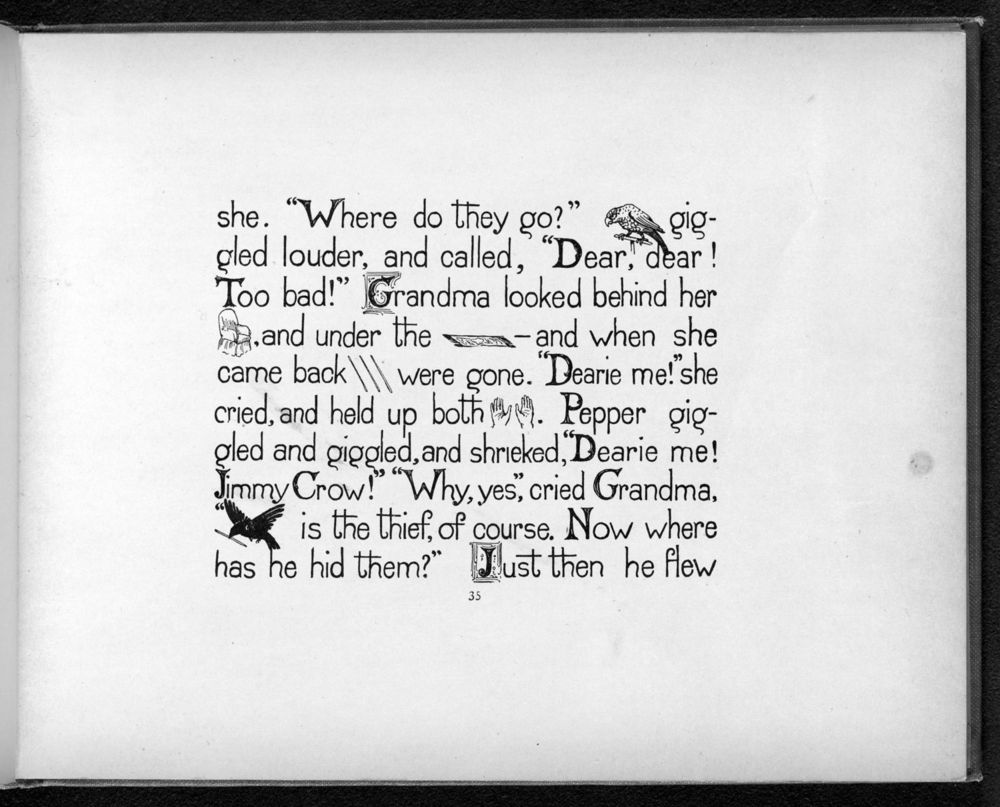 she. “Where do they go?” gig-
gled louder, and called, “Dear, dear!
Too bad!” Grandma looked behind her
, and under the — and when she
came back were gone. “Dearie me!” she
cried, and held up both . Pepper gig-
gled and giggled, and shrieked, “Dearie me!
Jimmy Crow!” “Why, yes”, cried Grandma,
“ is the thief, of course. Now where
has he hid them?” Just then he flew
35